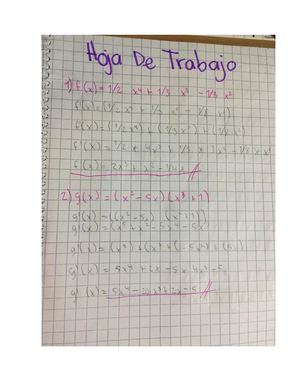 Hoja De Trabajo
1) f(x) = 1/2 x⁴ + 1/3 x³ - 1/8 x²
f(x) = (1/2 x⁴ + 1/3 x³ - 1/8 x²)
f(x) = (1/2 x⁴) + (1/3 x³) + (1/8 x²)
f'(x) = 1/2 x 4x³ + 1/3 x 3x² - 1/8 x
f'(x) = 2x³ + x² - 1/4x
2) g(x) = (x² - 5x) (x³ + 1)
g'(x) = ((x² - 5x) (x³ + 1))
g'(x) = 
g'(x) = 
g'(x) = 5x⁴ + 2x - 5 x 4x³ - 5
g'(x) = 5x⁴ - 20x³ + 2x - 5